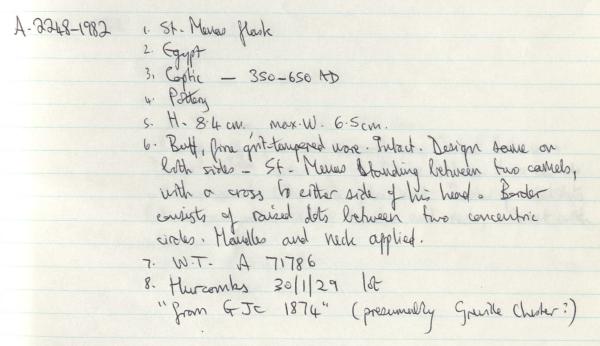 A-2248-1982 1. St. Menas flask
2. Egypt
3. Coptic — 350-650 AD
4. Pottery
5. H. 8.4 cm. max. W. 6.5 cm.
6. Buff, fine grit-tempered ware. Intact. Design same on
both sides - St. Menas standing between two camels,
with a cross to either side of his head. Border
consists of raised dots between two concentric
circles. Handles and neck applied.
7. W.T. A 71786
8. Hurcombs 30/1/29 lot
"from GJC 1874" (presumably Greville Chester?)